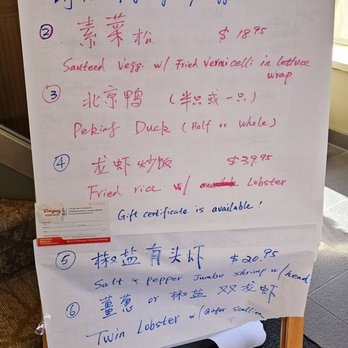 ② 素菜松 $18.95
Sauteed Veggi w/ Fried Vermicelli in Lettuce
wrap
③ 北京鸭 (半只或一只)
Peking Duck (Half or Whole)
④ 龙虾炒饭 $39.95
Fried rice w/ Lobster
Gift certificate is available!
⑤ 椒盐有头虾 $20.95
Salt & pepper Jumbo shrimp w/ head
⑥ 薑蔥 or 椒盐 双龙虾
Twin Lobster w/ scallion